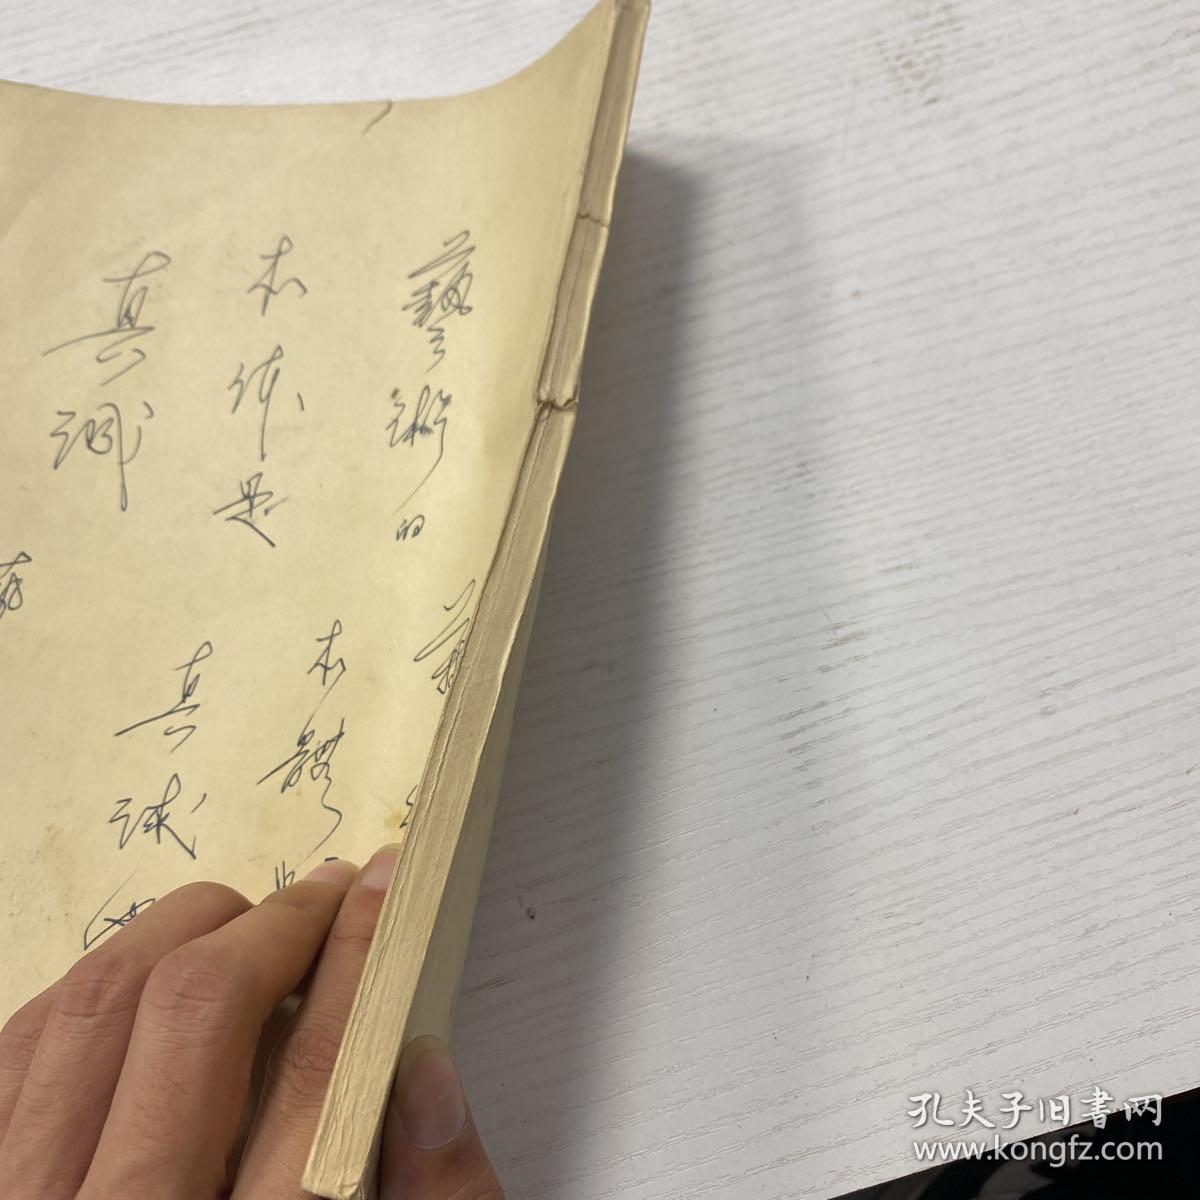 藝術的
本体是
真誠
本體
真誠
孔夫子旧書网
www.kongfz.com